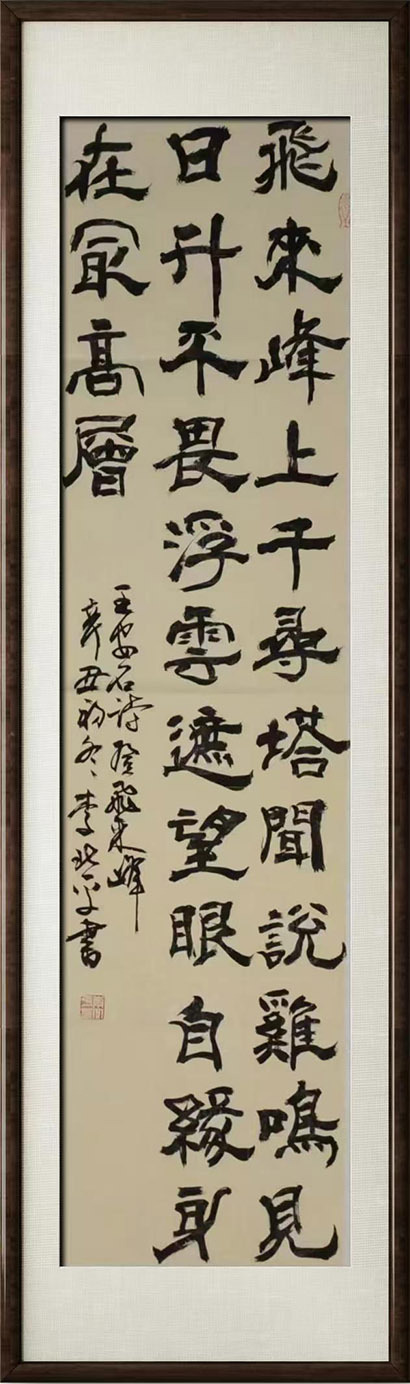 飛來峰上千尋塔聞說雞鳴見
日升不畏浮雲遮望眼自緣身
在冣高層
王安石詩登飛來峰
辛丑初冬李北平書